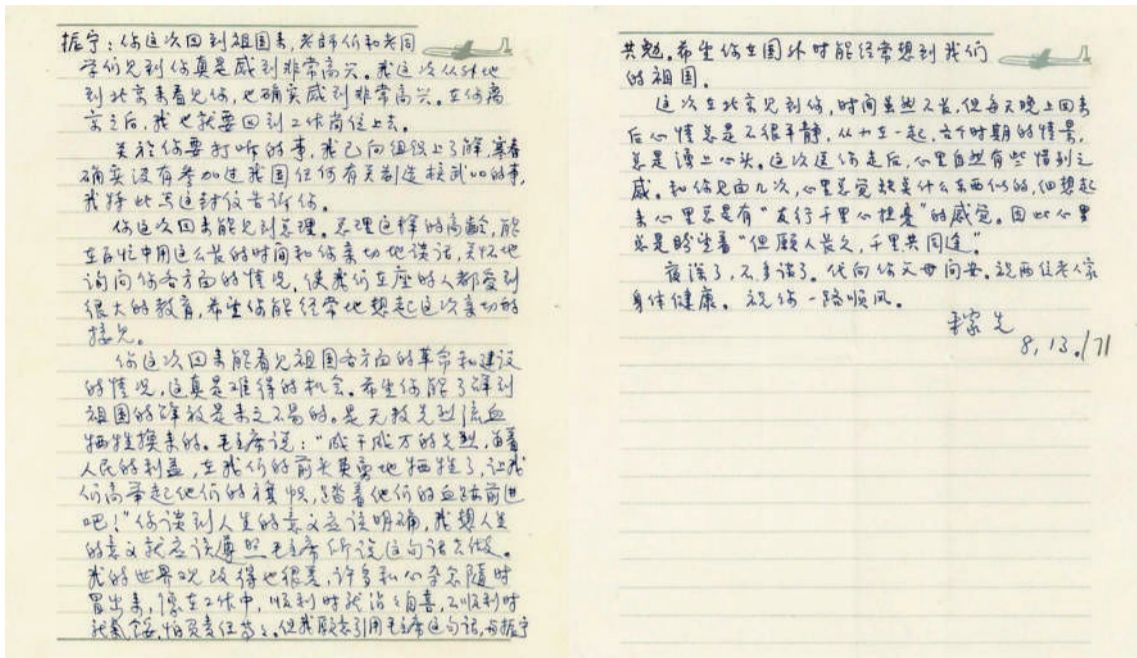 振宁：你这次回到祖国来，老师们和老同
学们见到你真是感到非常高兴。我这次从外地
到北京来看见你，也确实感到非常高兴。在你离
京之后，我也就要回到工作岗位上去。
关於你要打听的事，我已向组织上了解，寒春
确实没有参加过我国任何有关制造核武口的事，
我特此写这封信告诉你。
你这次回来能见到总理。总理这样的高龄，能
在百忙中用这么长的时间和你亲切地谈话，关怀地
询问你各方面的情况，使我们在座的人都受到
很大的教育，希望你能经常地想起这次亲切的
接见。
你这次回来能看见祖国各方面的革命和建设
的情况，这真是难得的机会。希望你能了解到
祖国的解放是来之不易的。是无数先烈流血
牺牲换来的。毛主席说：“成千成万的先烈，为着
人民的利益，在我们的前头英勇地牺牲了，让我
们高举起他们的旗帜，踏着他们的血迹前进
吧！”你谈到人生的意义应该明确，我想人生
的意义就应该遵照毛主席所说这句话去做。
我的世界观改得也很差，许多私心杂念随时
冒出来，像在工作中，顺利时就沾沾自喜，不顺利时
就气馁，怕负责任等等。但我愿意引用毛主席这句话，与振宁
共勉。希望你在国外时能经常想到我们
的祖国。
这次在北京见到你，时间虽然不长，但每天晚上回来
后心情总是不很平静，从小在一起，各个时期的情景，
总是涌上心头。这次送你走后，心里自然有些惜别之
感。和你见面几次，心里总觉缺点什么东西似的，细想起
来心里总是有“友行千里心担忧”的感觉。因此心里
总是盼望着“但愿人长久，千里共同途”。
夜深了，不多谈了。代向你父母问安。祝两位老人家
身体健康。祝你一路顺风。
稼先
8，13．/71